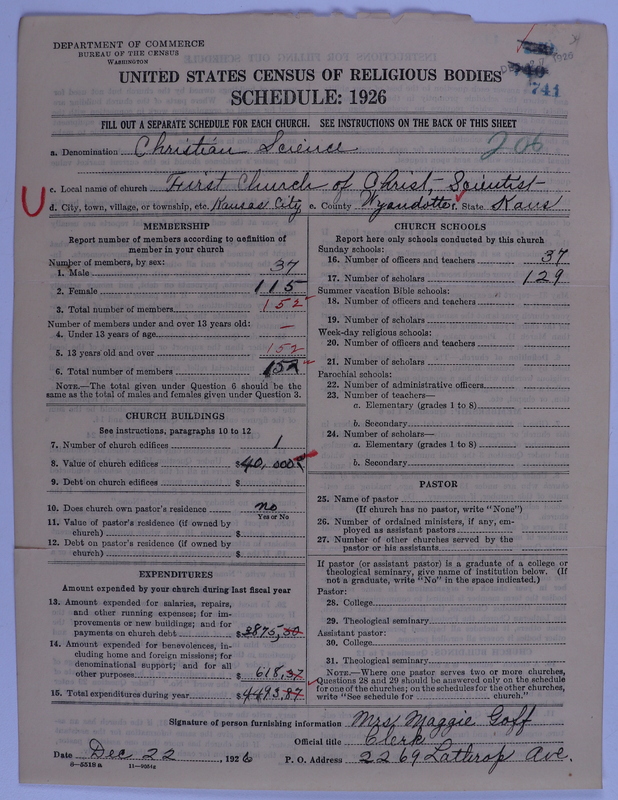 DEPARTMENT OF COMMERCE
BUREAU OF THE CENSUS
WASHINGTON
741
UNITED STATES CENSUS OF RELIGIOUS BODIES
SCHEDULE: 1926
FILL OUT A SEPARATE SCHEDULE FOR EACH CHURCH. SEE INSTRUCTIONS ON THE BACK OF THIS SHEET
a. Denomination Christian Science 206
c. Local name of church First Church of Christ, Scientist
d. City, town, village, or township, etc. Kansas City e. County Wyandotte f. State Kans
MEMBERSHIP
Report number of members according to definition of
member in your church
Number of members, by sex:
1. Male 37
2. Female 115
3. Total number of members 152
Number of members under and over 13 years old:
4. Under 13 years of age —
5. 13 years old and over 152
6. Total number of members 152
NOTE.—The total given under Question 6 should be the
same as the total of males and females given under Question 3.
CHURCH BUILDINGS
See instructions, paragraphs 10 to 12
7. Number of church edifices 1
8. Value of church edifices $40,000
9. Debt on church edifices $
10. Does church own pastor's residence no
Yes or No
11. Value of pastor's residence (if owned by
church) $
12. Debt on pastor's residence (if owned by
church) $
EXPENDITURES
Amount expended by your church during last fiscal year
13. Amount expended for salaries, repairs,
and other running expenses; for im-
provements or new buildings; and for
payments on church debt $3875,50
14. Amount expended for benevolences, in-
cluding home and foreign missions; for
denominational support; and for all
other purposes 618,37
15. Total expenditures during year $4493,87
CHURCH SCHOOLS
Report here only schools conducted by this church
Sunday schools:
16. Number of officers and teachers 37
17. Number of scholars 129
Summer vacation Bible schools:
18. Number of officers and teachers
19. Number of scholars
Week-day religious schools:
20. Number of officers and teachers
21. Number of scholars
Parochial schools:
22. Number of administrative officers
23. Number of teachers—
a. Elementary (grades 1 to 8)
b. Secondary
24. Number of scholars—
a. Elementary (grades 1 to 8)
b. Secondary
PASTOR
25. Name of pastor
(If church has no pastor, write "None")
26. Number of ordained ministers, if any, em-
ployed as assistant pastors
27. Number of other churches served by the
pastor or his assistants
If pastor (or assistant pastor) is a graduate of a college or
theological seminary, give name of institution below. (If
not a graduate, write "No" in the space indicated.)
Pastor:
28. College
29. Theological seminary
Assistant pastor:
30. College
31. Theological seminary
NOTE.—Where one pastor serves two or more churches,
Questions 28 and 29 should be answered only on the schedule
for one of the churches; on the schedules for the other churches,
write "See schedule for church."
Signature of person furnishing information Mrs Maggie Goff
Official title Clerk
Date Dec 22, 1926 P. O. Address 2269 Lathrop Ave.